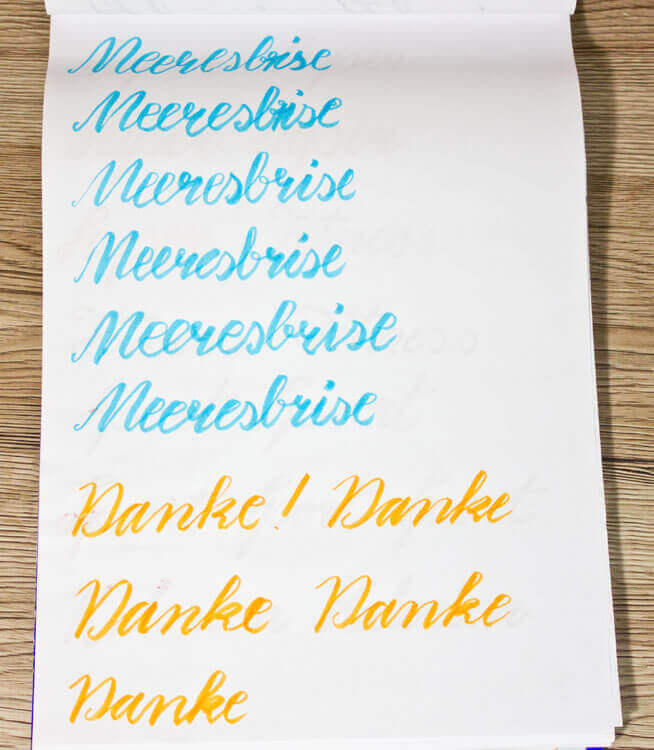 Meeresbrise
Meeresbrise
Meeresbrise
Meeresbrise
Meeresbrise
Meeresbrise
Danke! Danke
Danke Danke
Danke